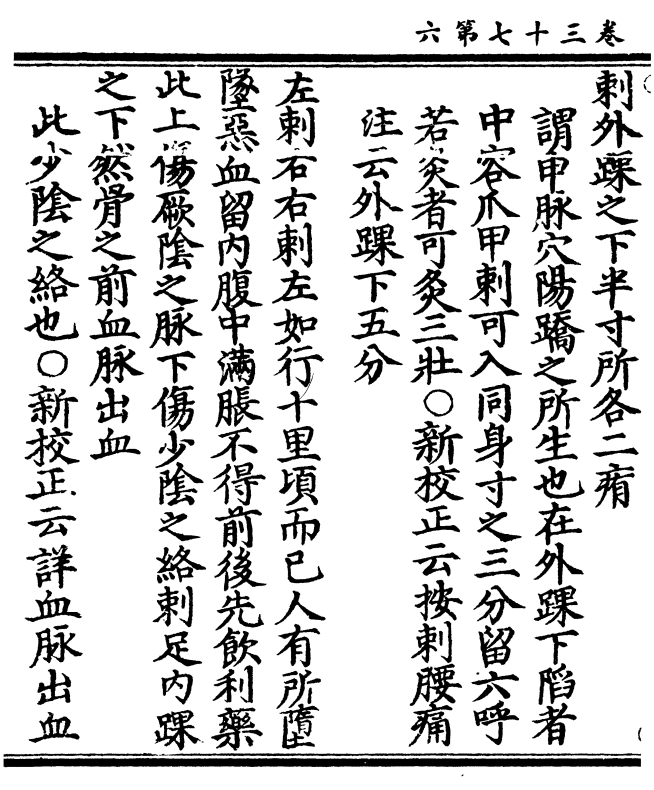 卷三十七第六
刺外踝之下半寸所各二痏
謂申脉穴陽蹻之所生也在外踝下陷者
中容爪甲刺可入同身寸之三分留六呼
若灸者可灸三壯○新校正云按刺腰痛
注云外踝下五分
左刺右右刺左如行十里頃而已人有所墮
墜惡血留内腹中滿脹不得前後先飲利藥
此上傷厥陰之脉下傷少陰之絡刺足内踝
之下然骨之前血脉出血
此少陰之絡也○新校正云詳血脉出血